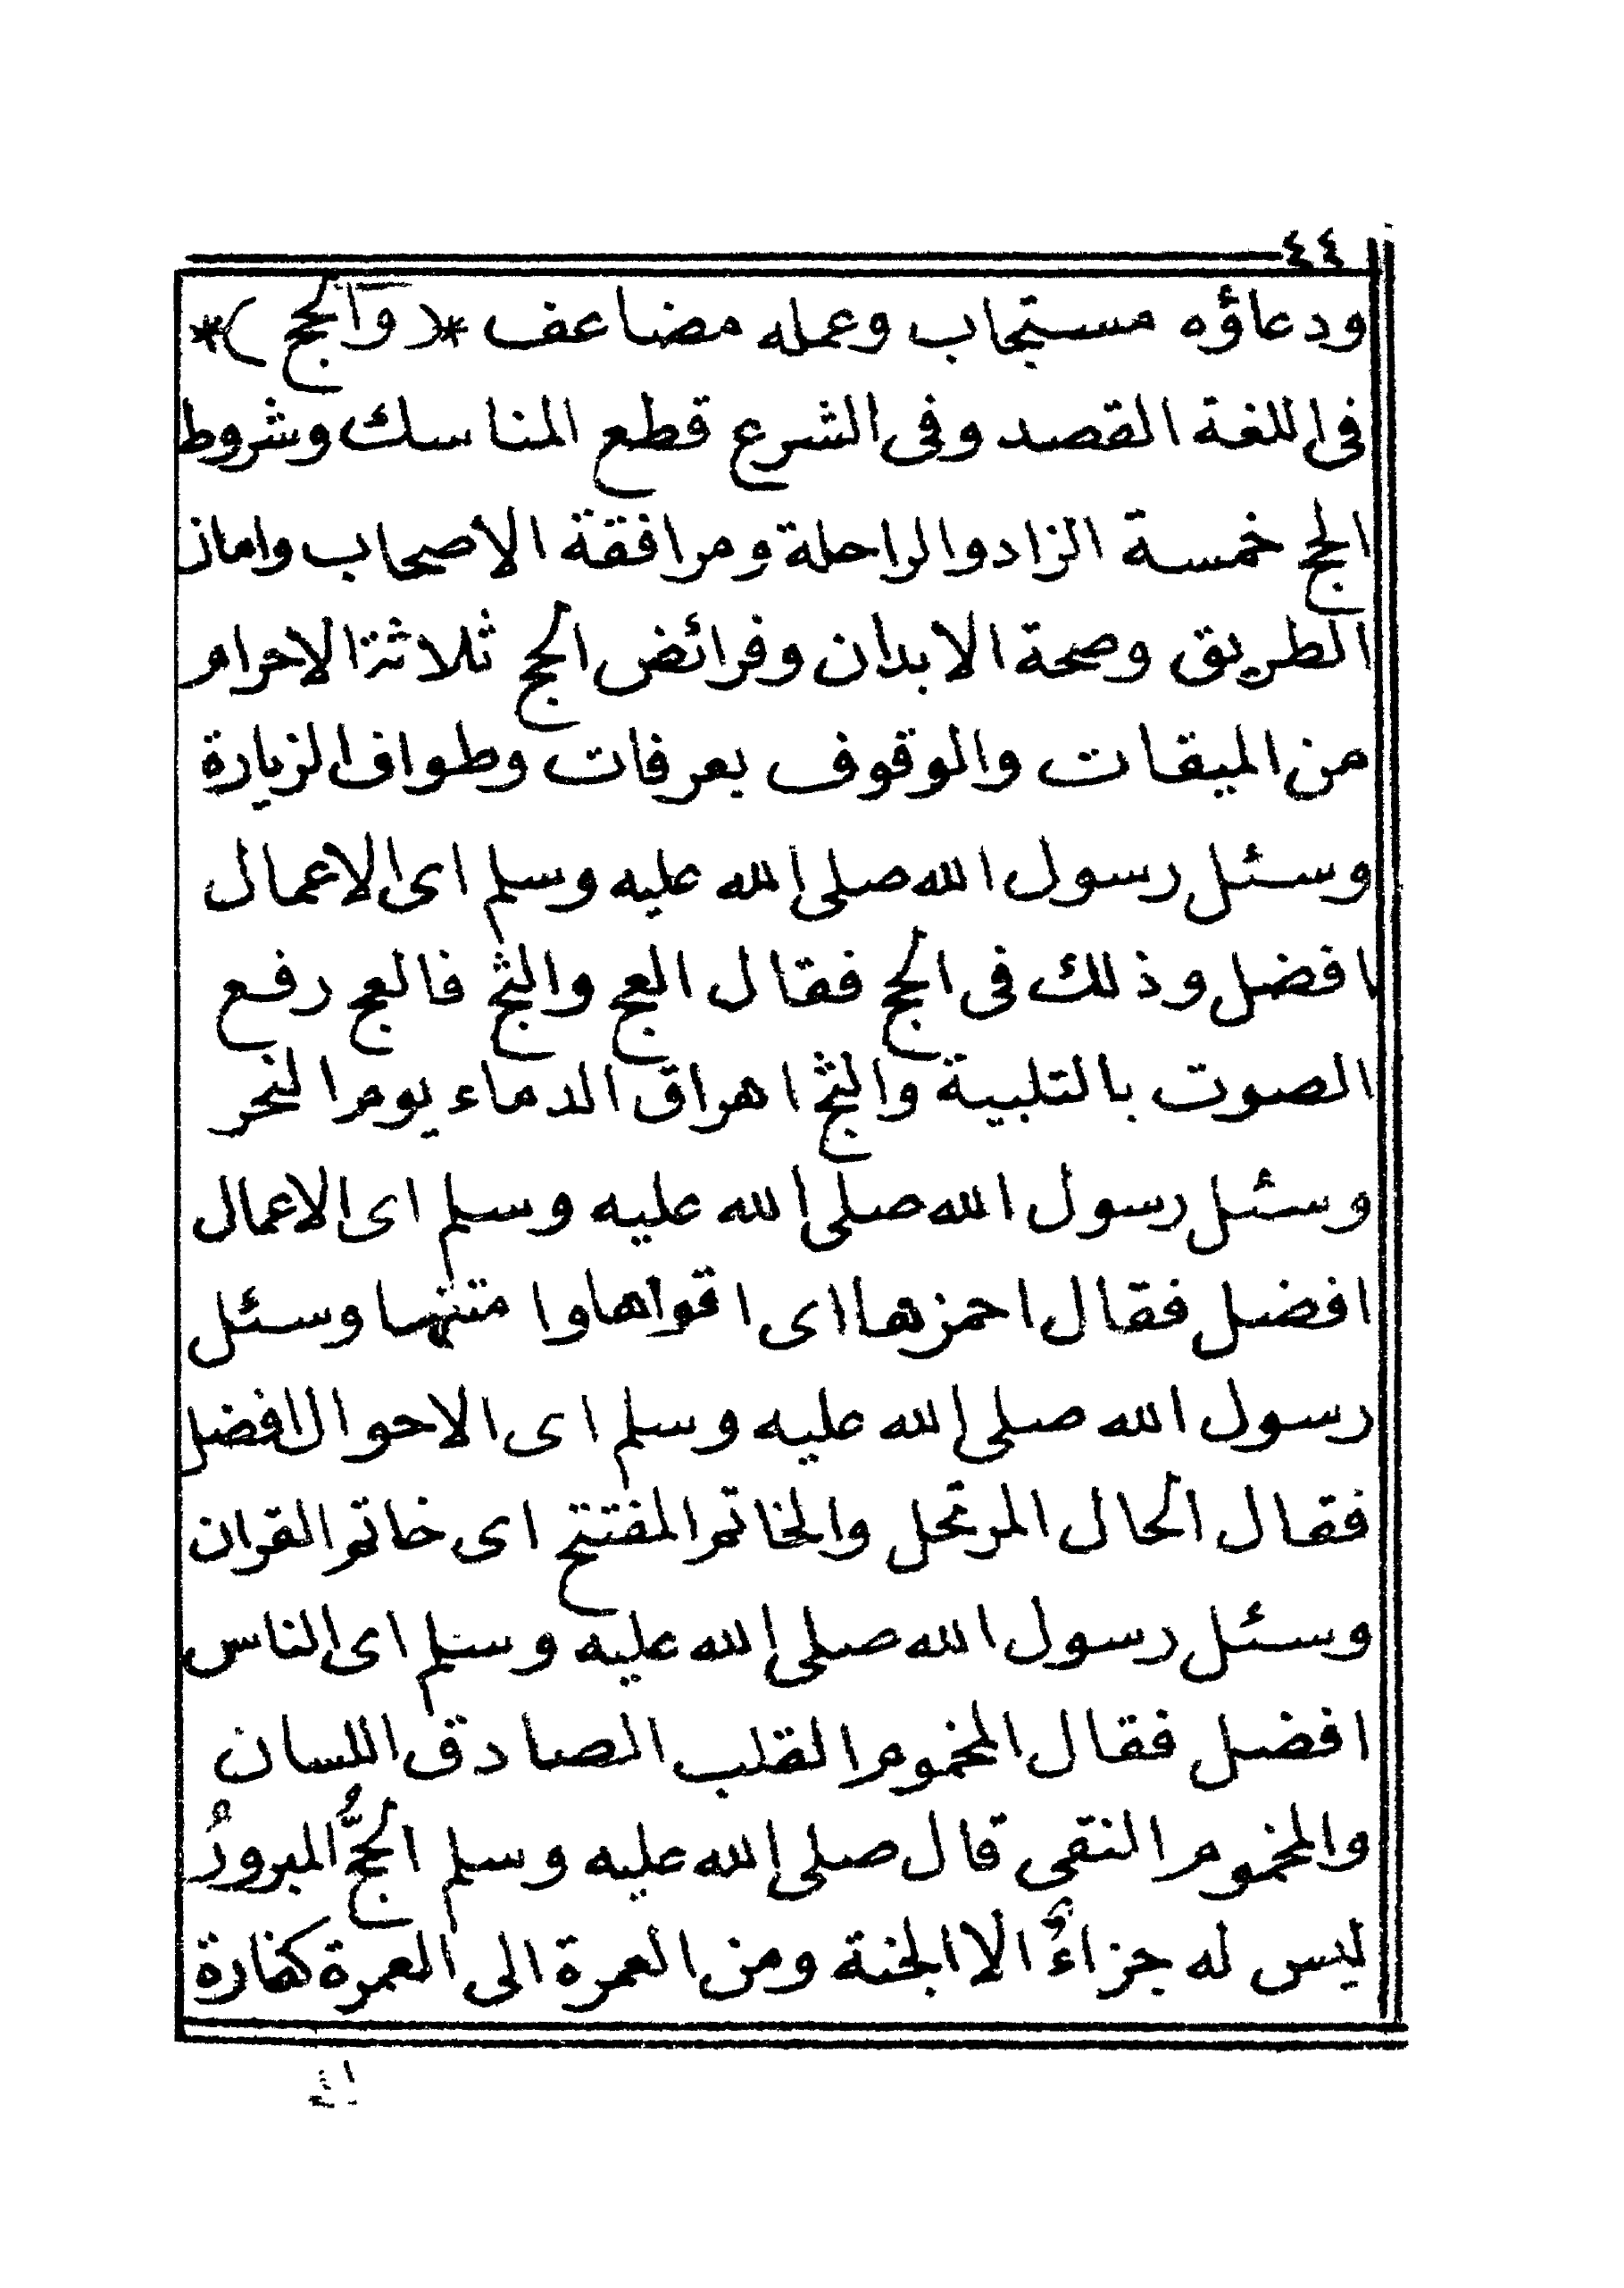 ٤٤
ودعاؤه مستجاب وعمله مضاعف *( والحج )*
فى اللغة القصد وفى الشرع قطع المناسك وشروط
الحج خمسة الزاد والراحلة ومرافقة الاصحاب وامان
الطريق وصحة الابدان وفرائض الحج ثلاثة الاحرام
من الميقات والوقوف بعرفات وطواف الزيارة
وسئل رسول الله صلى الله عليه وسلم اى الاعمال
افضل وذلك فى الحج فقال العج والثج فالعج رفع
الصوت بالتلبية والثج اهراق الدماء يوم النحر
وسئل رسول الله صلى الله عليه وسلم اى الاعمال
افضل فقال احمزها اى اقواها وا متنها وسئل
رسول الله صلى الله عليه وسلم اى الاحوال افضل
فقال الحال المرتحل والخاتم المفتتح اى خاتم القران
وسئل رسول الله صلى الله عليه وسلم اى الناس
افضل فقال المخموم القلب الصادق اللسان
والمخموم النقى قال صلى الله عليه وسلم الحجُّ المبرورُ
ليس له جزاءٌ الا الجنة ومن العمرة الى العمرة كفارة